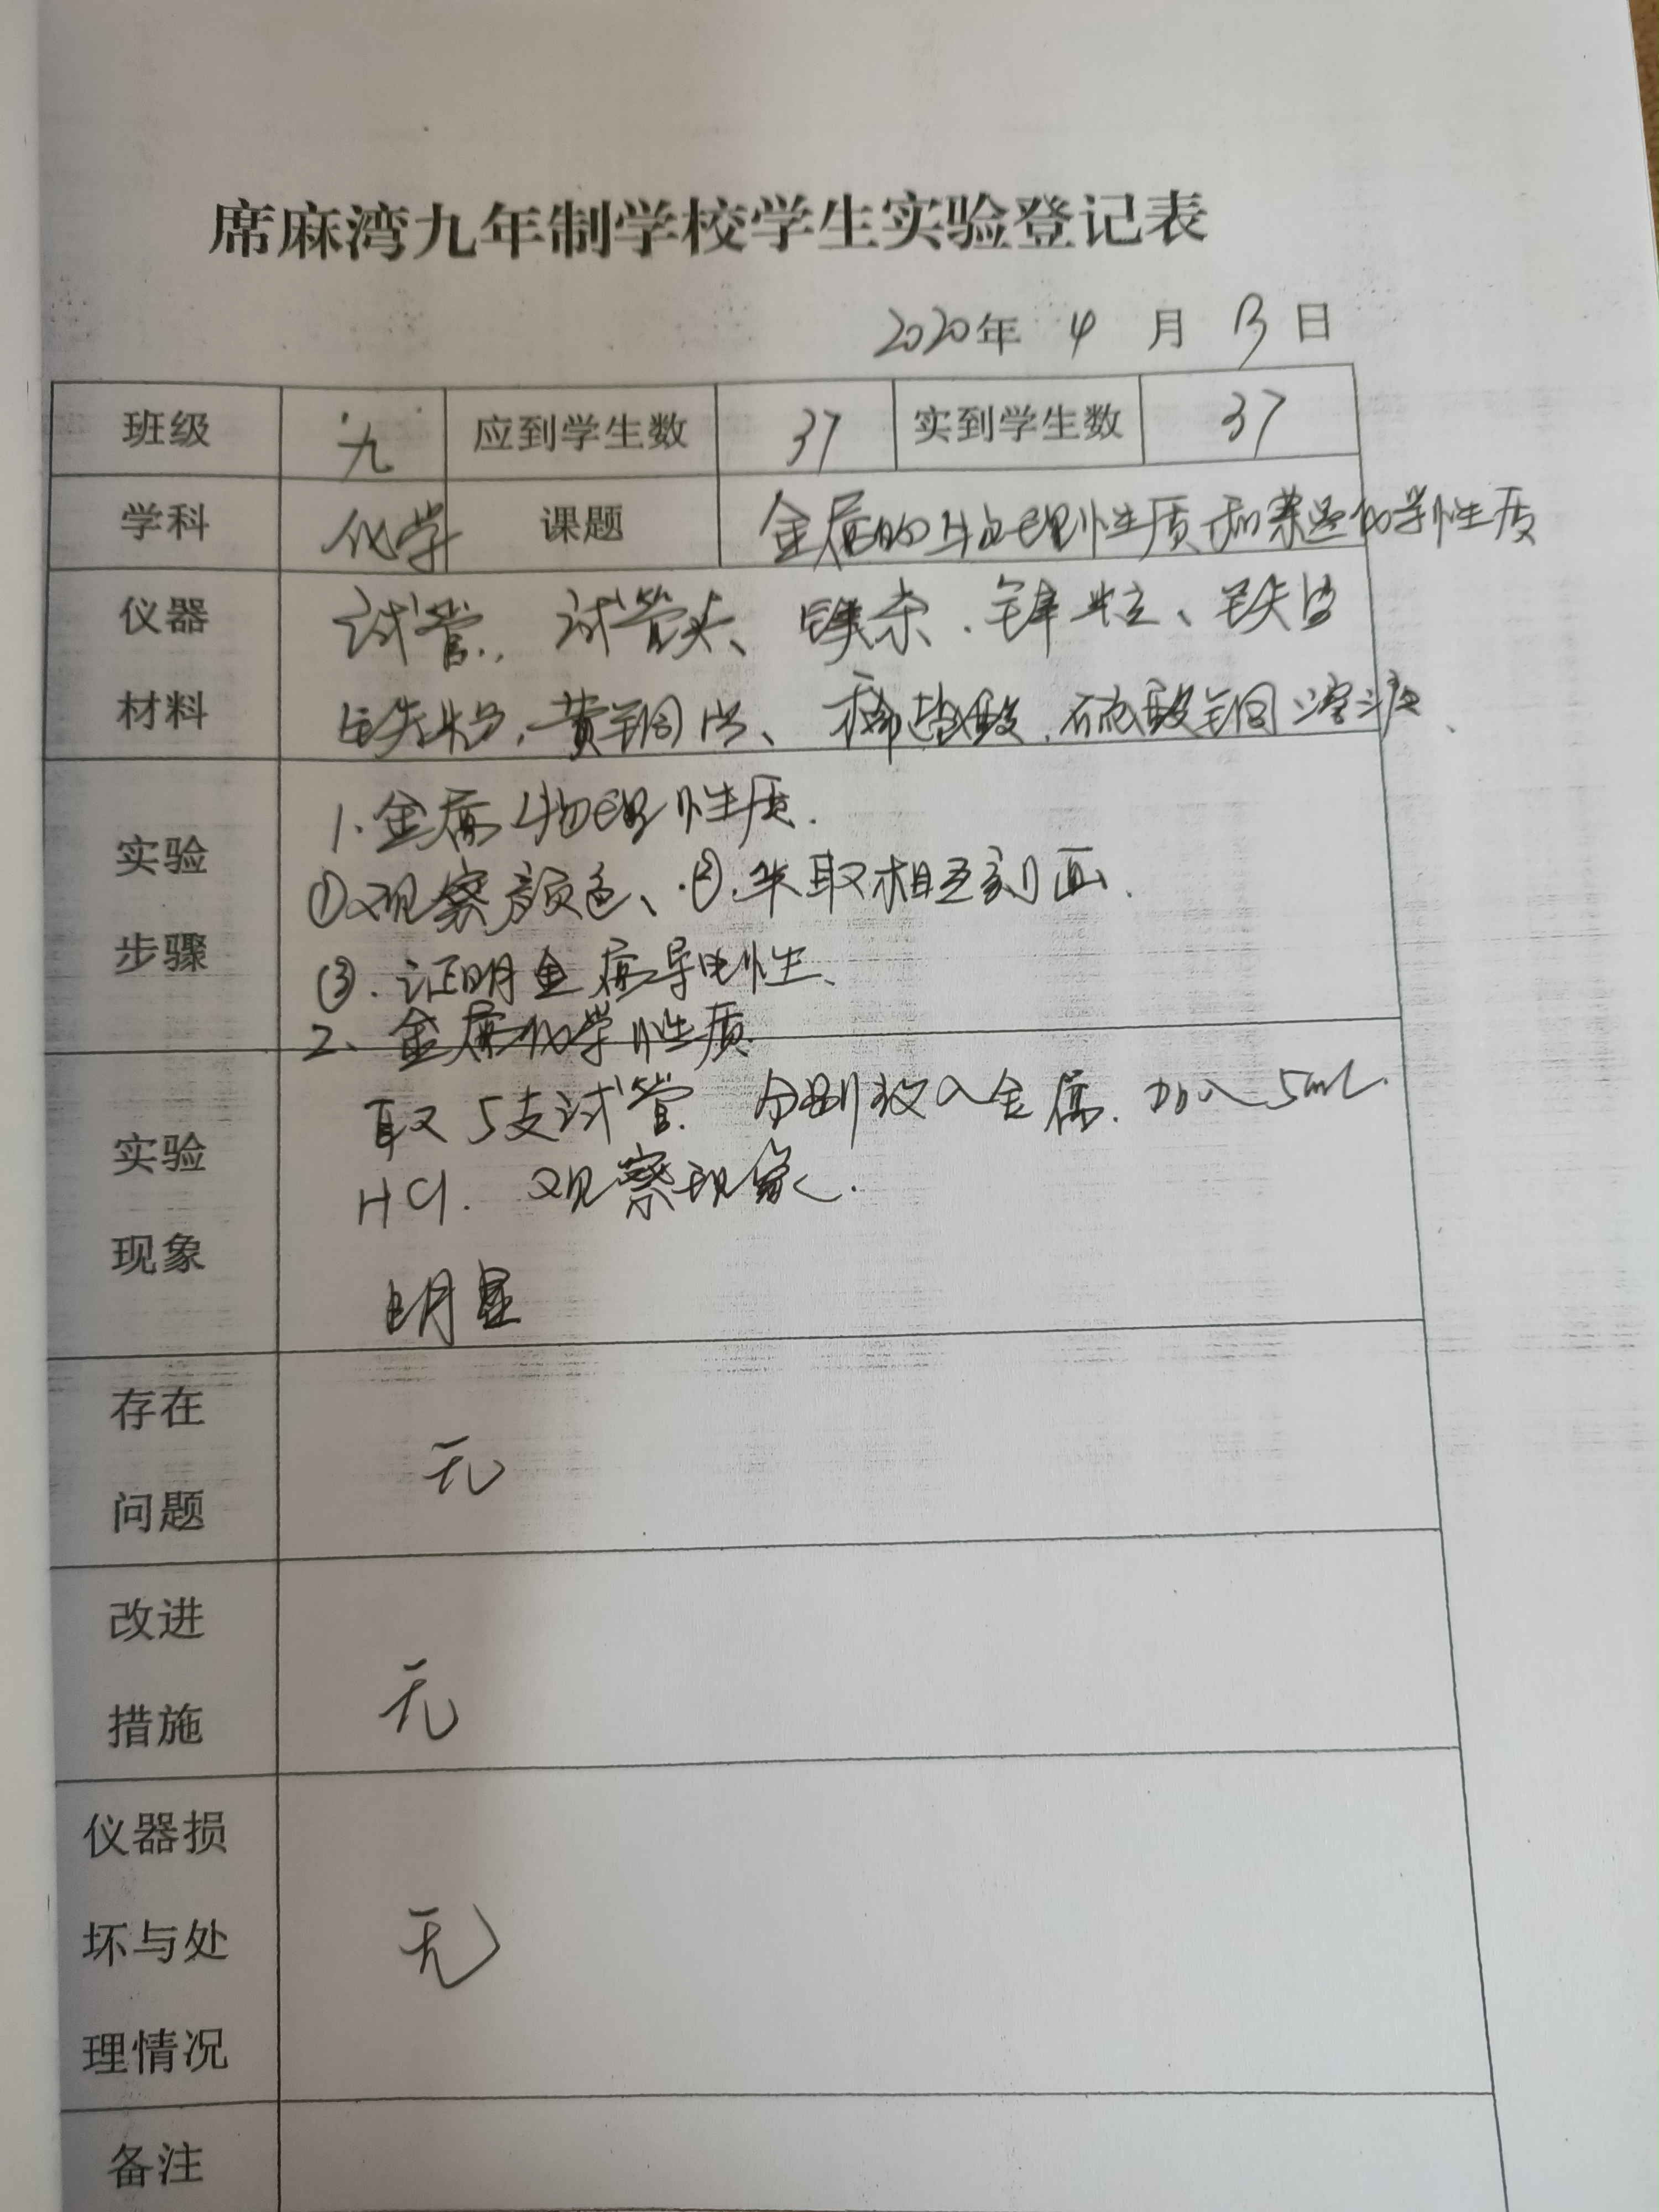 席麻湾九年制学校学生实验登记表
2020年 4 月 13 日
班级 九 应到学生数 37 实到学生数 37
学科 化学 课题 金属的物理性质和某些化学性质
仪器 试管、试管夹、镁条、锌粒、铁片
材料 铁粉、黄铜片、稀盐酸、硫酸铜溶液、
1、金属物理性质.
实验 ①观察颜色、②采取相互刻画.
步骤 ③、证明金属导电性、
2、金属化学性质
实验 取5支试管 分别放入金属. 加入5mL.
HCl. 观察现象.
现象 明显
存在
问题 无
改进
措施 无
仪器损
坏与处 无
理情况
备注